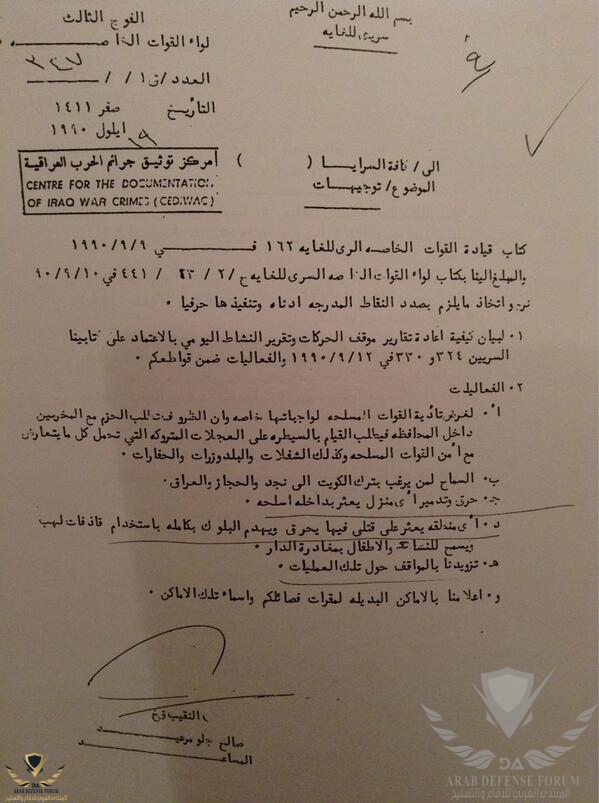 بسم الله الرحمن الرحيم
سري للغايه
الفوج الثالث
لواء القوات الخاصـــــه
٣٤٧
العدد /ق١/ /
التاريخ صفر ١٤١١
١٩ ايلول ١٩٩٠
مركز توثيق جرائم الحرب العراقية
CENTRE FOR THE DOCUMENTATION
OF IRAQ WAR CRIMES (CEDIWAC)
الى / كافة السرايـــا ( )
الموضوع / توجيهـــات
كتاب قيادة القوات الخاصه السري للغايه ١٦٢ فــــي ١٩٩٠/٩/٩
والمبلغ الينا بكتاب لواء القوات الخاصه السري للغايه ج/٢/ ٤٣ / ٤٤١ في ٩٠/٩/١٠
نرجو اتخاذ مايلزم بصدد النقاط المدرجه ادناه وتنفيذها حرفيا ٠
١٠ لبيان كيفية اعادة تقارير موقف الحركات وتقرير النشاط اليومي بالاعتماد على كتابينا
السريين ٣٢٤ و ٣٣٠ في ١٩٩٠/٩/١٢ والفعاليات ضمن قواطعكم ٠
٢٠ الفعاليات
أ٠ لغرض تأدية القوات المسلحه لواجباتها خاصه وان الظروف تتطلب الحزم مع المخربين
داخل المحافظه فيتطلب القيام بالسيطره على العجلات المتروكه التي تحمل كل ما يتعارض
مع أمن القوات المسلحه وكذلك الشفلات والبلدوزرات والحفارات ٠
ب٠ السماح لمن يرغب بترك الكويت الى نجد والحجاز والعراق٠
ج٠ حرق وتدمير أى منزل يعثر بداخله اسلحه ٠
د٠ أى منطقه يعثر على قتلى فيها يحرق ويهدم البلوك بكامله باستخدام قاذفات لهب
ويسمح للنساء والاطفال بمغادرة الدار ٠
هـ٠ تزويدنا بالمواقف حول تلك العمليات ٠
و٠ اعلامنا بالاماكن البديله لمقرات فصائلكم واسماء تلك الاماكن ٠
النقيب ق خ
صالح جلو مرعيـــد
المساعـــــد
ARAB DEFENSE FORUM
المنتدى العربي للدفاع والتسليح
ARAB DEFENSE FORUM
المنتدى العربي للدفاع والتسليح